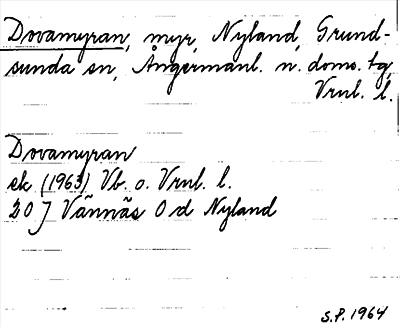 Dovamyran, myr, Nyland, Grund-
sunda sn, Ångermanl. n. doms. tg,
Vrnl. l.
Dovamyran
ek (1963) Vb. o. Vrnl. l.
20 J Vännäs Od Nyland
S.P. 1964